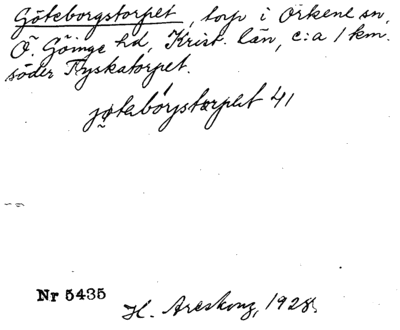 Göteborgstorpet, torp i Örkene sn,
Ö. Göinge hd, Krist. län, c:a 1 km.
söder Ryskatorpet.
jøteborjstorpet 41
Nr 5435
H. Areskoug, 1928